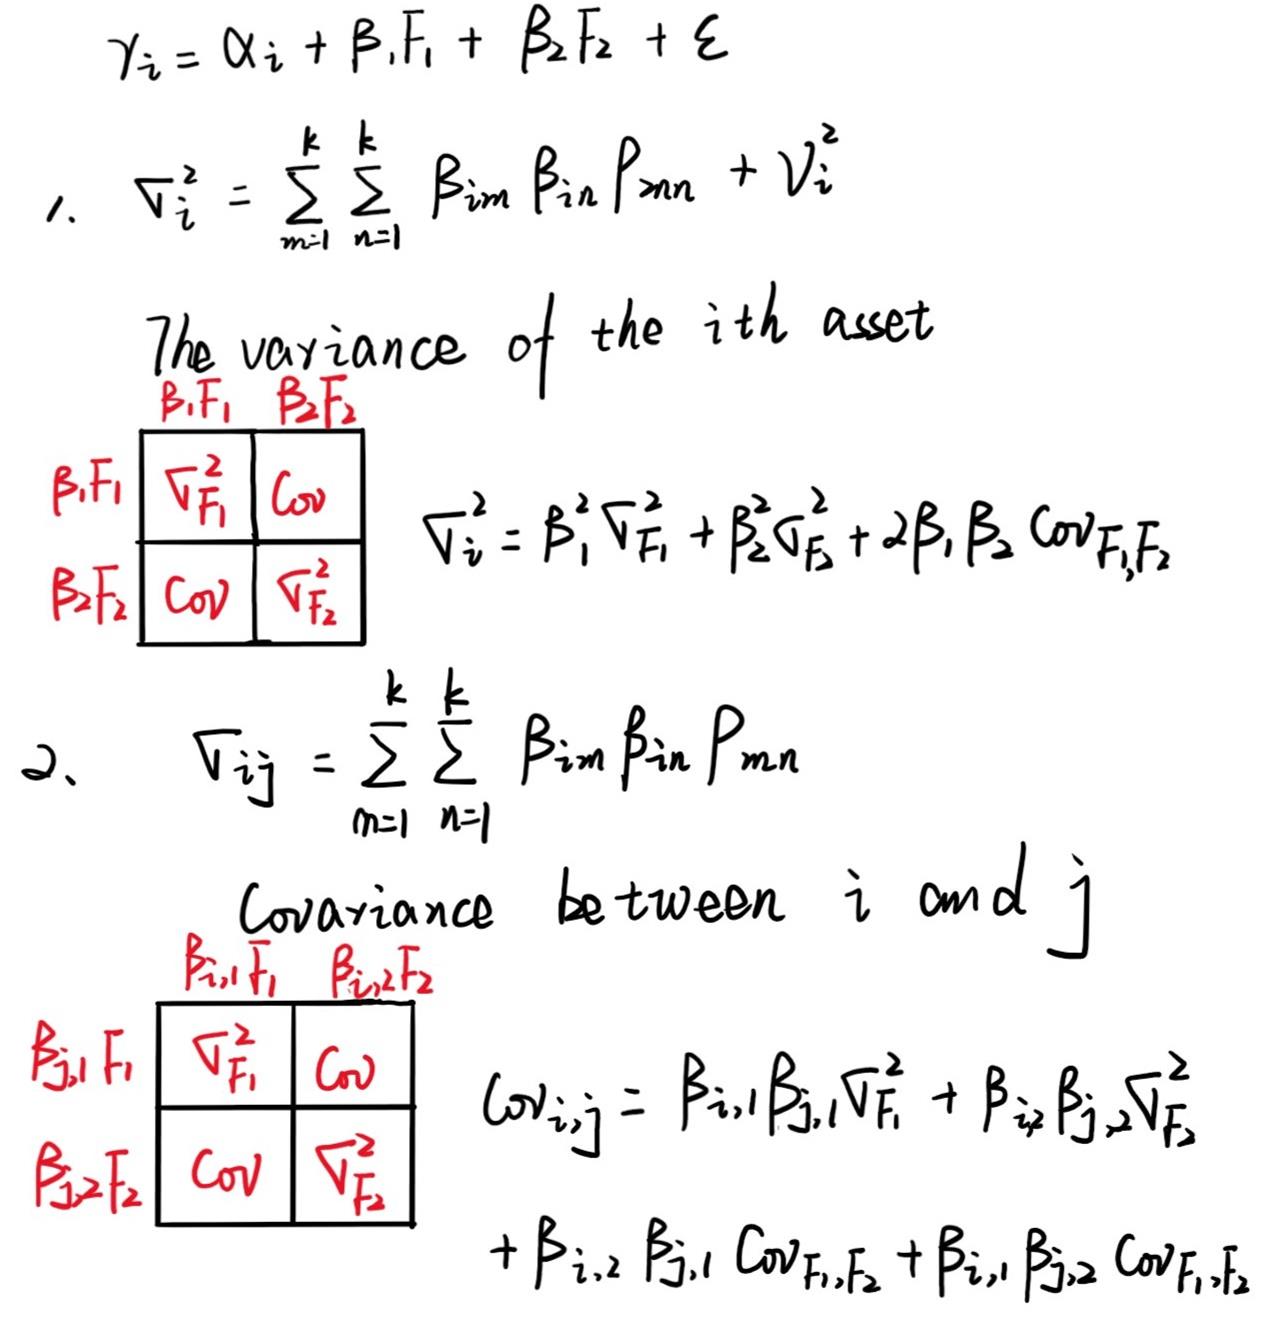 γᵢ = αᵢ + β₁F₁ + β₂F₂ + ε
1. σᵢ² = ∑ₘ₌₁ᵏ ∑ₙ₌₁ᵏ βᵢₘ βᵢₙ ρₘₙ + νᵢ²
The variance of the ith asset
β₁F₁ β₂F₂
β₁F₁ σ²_F₁ Cov
β₂F₂ Cov σ²_F₂
σᵢ² = β₁²σ²_F₁ + β₂²σ²_F₂ + 2β₁β₂ Cov_F₁,F₂
2、 σᵢⱼ = ∑ₘ₌₁ᵏ ∑ₙ₌₁ᵏ βᵢₘ βᵢₙ ρₘₙ
Covariance between i and j
βᵢ,₁F₁ βᵢ,₂F₂
βⱼ,₁F₁ σ²_F₁ Cov
βⱼ,₂F₂ Cov σ²_F₂
Covᵢ,ⱼ = βᵢ,₁βⱼ,₁σ²_F₁ + βᵢ,₂βⱼ,₂σ²_F₂
+ βᵢ,₂ βⱼ,₁ Cov_F₁,F₂ + βᵢ,₁ βⱼ,₂ Cov_F₁,F₂